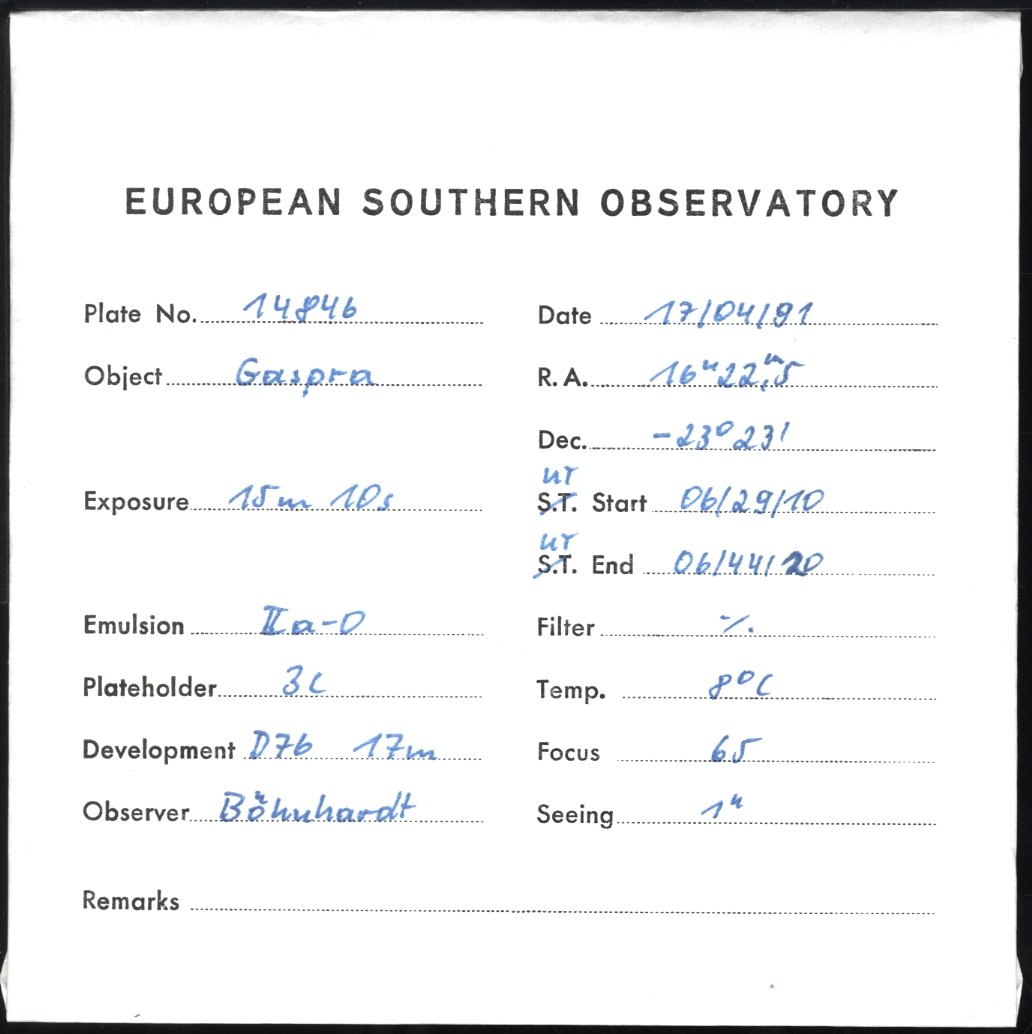 EUROPEAN SOUTHERN OBSERVATORY
Plate No. 14846 Date 17/04/91
Object Gaspra R.A. 16ʰ22ᵐ,5
Dec. -23°23'
UT
Exposure 15m 10s S.T. Start 06/29/10
UT
S.T. End 06/44/20
Emulsion IIa-O Filter ./.
Plateholder 3C Temp. 8°C
Development D76 17m Focus 65
Observer Böhnhardt Seeing 1"
Remarks